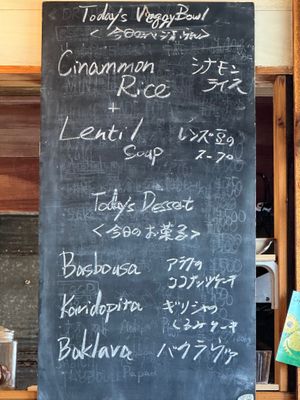 Today's VeggyBowl
<今日のベジボウル>
Cinammon シナモン
Rice ライス
+
Lentil レンズ豆の
Soup スープ
Today's Dessert
<今日のお菓子>
Basbousa アラブの
ココナッツケーキ
Karidopita ギリシャの
くるみケーキ
Baklava バクラヴァ